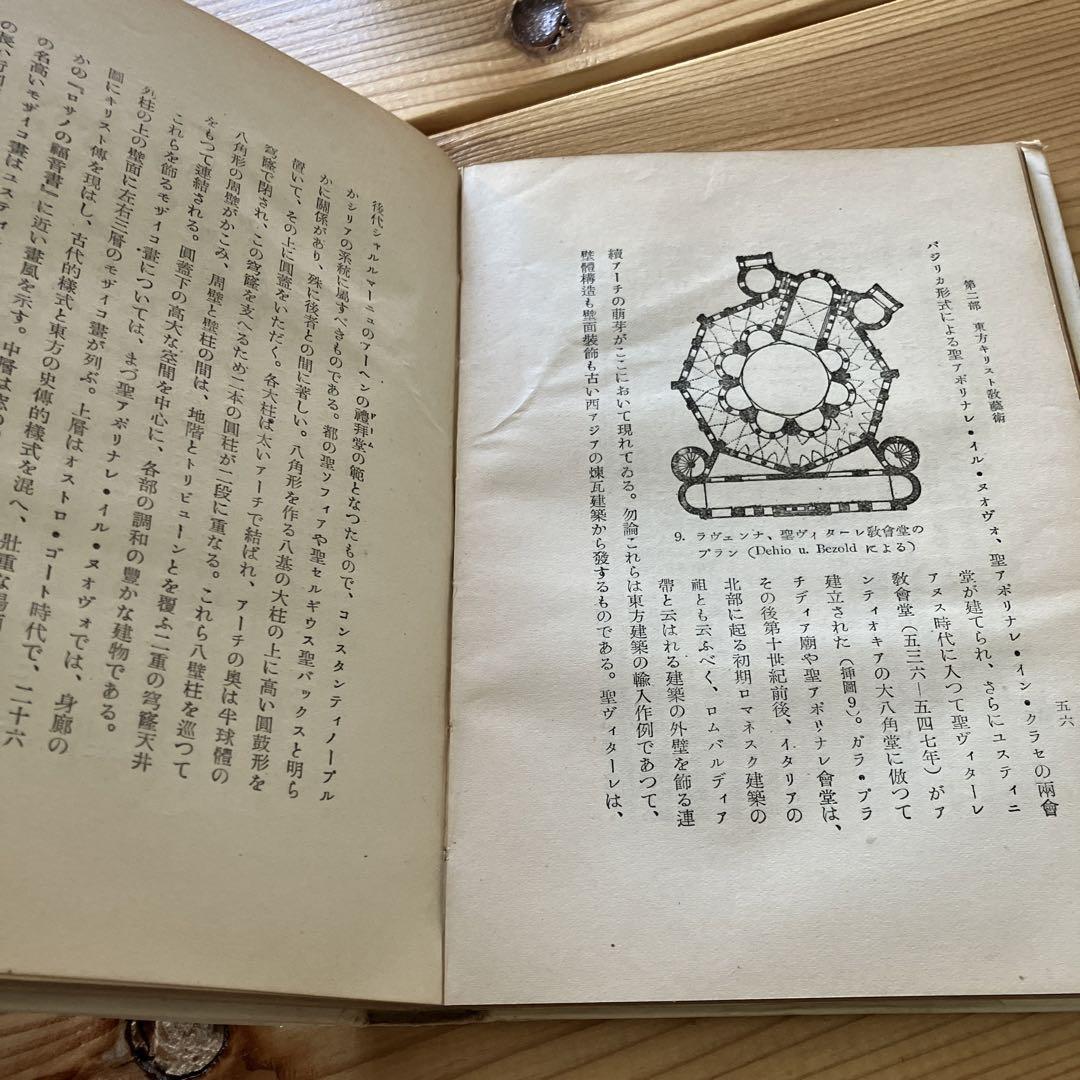 五六
第二部 東方キリスト教藝術
バジリカ形式による聖アポリナレ・イル・ヌオヴォ、聖アポリナレ・イン・クラセの兩會
堂が建てられ、さらにユスティニ
アヌス時代に入つて聖ヴィターレ
教會堂(五三六―五四七年)がア
ンティオキアの大八角堂に倣つて
建立された(插圖9)。ガラ・プラ
チディア廟や聖アポリナレ會堂は、
その後第十世紀前後、イタリアの
北部に起る初期ロマネスク建築の
祖とも云ふべく、ロムバルディア
帶と云はれる建築の外壁を飾る連
9. ラヴェンナ、聖ヴィターレ教會堂の
プラン (Dehio u. Bezold による)
續アーチの萌芽がここにおいて現れてゐる。勿論これらは東方建築の輸入作例であつて、
壁體構造も壁面裝飾も古い西アジアの煉瓦建築から發するものである。聖ヴィターレは、
後代シャルルマーニュのアーヘンの禮拜堂の範となつたもので、コンスタンティノープル
かシリアの系統に屬すべきものである。都の聖ソフィアや聖セルギウス聖バックスと明ら
かに關係があり、殊に後者との間に著しい。八角形を作る八基の大柱の上に高い圓鼓形を
置いて、その上に圓蓋をいただく。各大柱は太いアーチで結ばれ、アーチの奥は半球體の
穹窿で閉され、この穹窿を支へるため二本の圓柱が二段に重なる。これら八壁柱を巡つて
八角形の周壁がかこみ、周壁と壁柱の間は、地階とトリビューンとを覆ふ二重の穹窿天井
をもつて連結される。圓蓋下の高大な空間を中心に、各部の調和の豐かな建物である。
これらを飾るモザイコ畫については、まづ聖アポリナレ・イル・ヌオヴォでは、身廊の
外柱の上の壁面に左右三層のモザイコ畫が列ぶ。上層はオストロ・ゴート時代で、二十六
圖にキリスト傳を現はし、古代的樣式と東方の史傳的樣式を混へ、壯重な
かの『ロサノの福音書』に近い畫風を示す。中層は窓の
の名高いモザイコ畫はユスティ
の長い行列